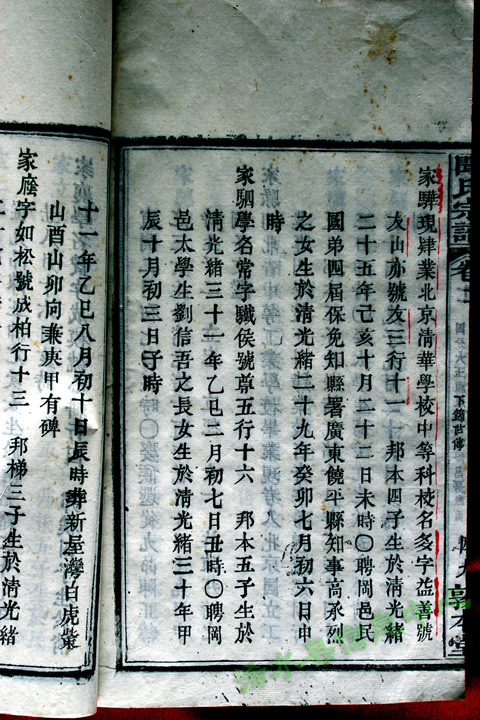 聞氏宗譜 卷
家驊現肄業北京清華學校中等科校名多字益善號
友山亦號友三行十一 邦本四子生於清光緒
二十五年己亥十月二十二日未時〇聘岡邑民
國第四屆保免知縣署廣東饒平縣知事高承烈
之女生於清光緒二十九年癸卯七月初六日申
時
家駟學名常字驖侯號章五行十六 邦本五子生於
清光緒三十一年乙巳二月初七日丑時〇聘岡
邑太學生劉信吾之長女生於清光緒三十年甲
辰十月初三日子時
十一年乙巳八月初十日辰時葬新屋灣白虎嘴
山酉山卯向兼庚甲有碑
家廕字如松號成柏行十三 邦梯三子生於清光緒